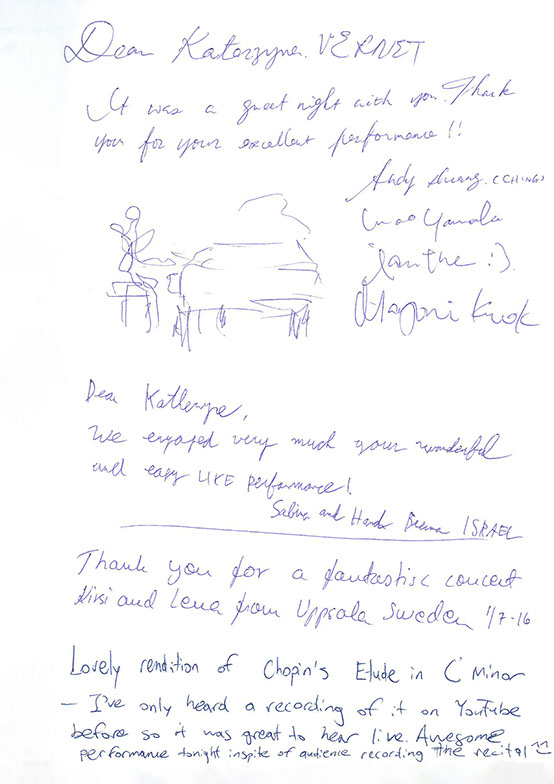 Dear Katarzyna VERNET
It was a great night with you. Thank
you for your excellent performance!!
Andy Huang. (CHINA)
Yamada
Ianthe :).
Dear Katherype,
We engoyed very much your wonderful
and easy LIKE performance!
Sabina and ISRAEL
Thank you for a fantastisc concert
Kirsi and Lena from Uppsala Sweden 1/7-16
Lovely rendition of Chopin's Etude in C Minor
— I've only heard a recording of it on YouTube
before so it was great to hear live. Awesome
performance tonight inspite of audience recording the recital